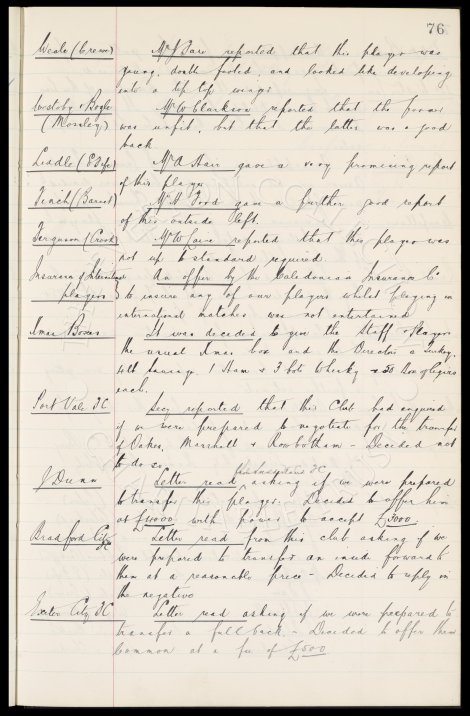 76
Weale (Crewe) Mr J Dare reported that this player was
young, double footed, and looked like developing
into a tip top winger
& Bogle Mr W Clarkson reported that the former
(Mossley) was unfit, but that the latter was a good
back
Liddle (E Fife) Mr A Harr gave a very promising report
of this player
Finch (Barnet) Mr H Ford gave a further good report
of this outside left.
Ferguson (Crook) Mr W Lowe reported that this player was
not up to standard required
Insurance of International An offer by the Caledonian Insurance Co
players to insure any of our players whilst playing in
international matches was not entertained
Xmas Boxes It was decided to give the Staff & Players
the usual Xmas box and the Directors a turkey,
4lb Sausage, 1 Ham & 3 bots Whisky & 50 Box of Cigars
each.
Port Vale FC Secy reported that this Club had enquired
if we were prepared to negotiate for the transfer
of Oakes, Marshall & Rowbotham – Decided not
to do so.
J Dunn Letter read from Sunderland FC asking if we were prepared
to transfer this player. – Decided to offer him
at £4000 with power to accept £3000.
Bradford City FC Letter read from this club asking if we
were prepared to transfer an inside forward to
them at a reasonable price – Decided to reply in
the negative
Exeter City FC Letter read asking if we were prepared to
transfer a full back – Decided to offer them
Common at a fee of £500